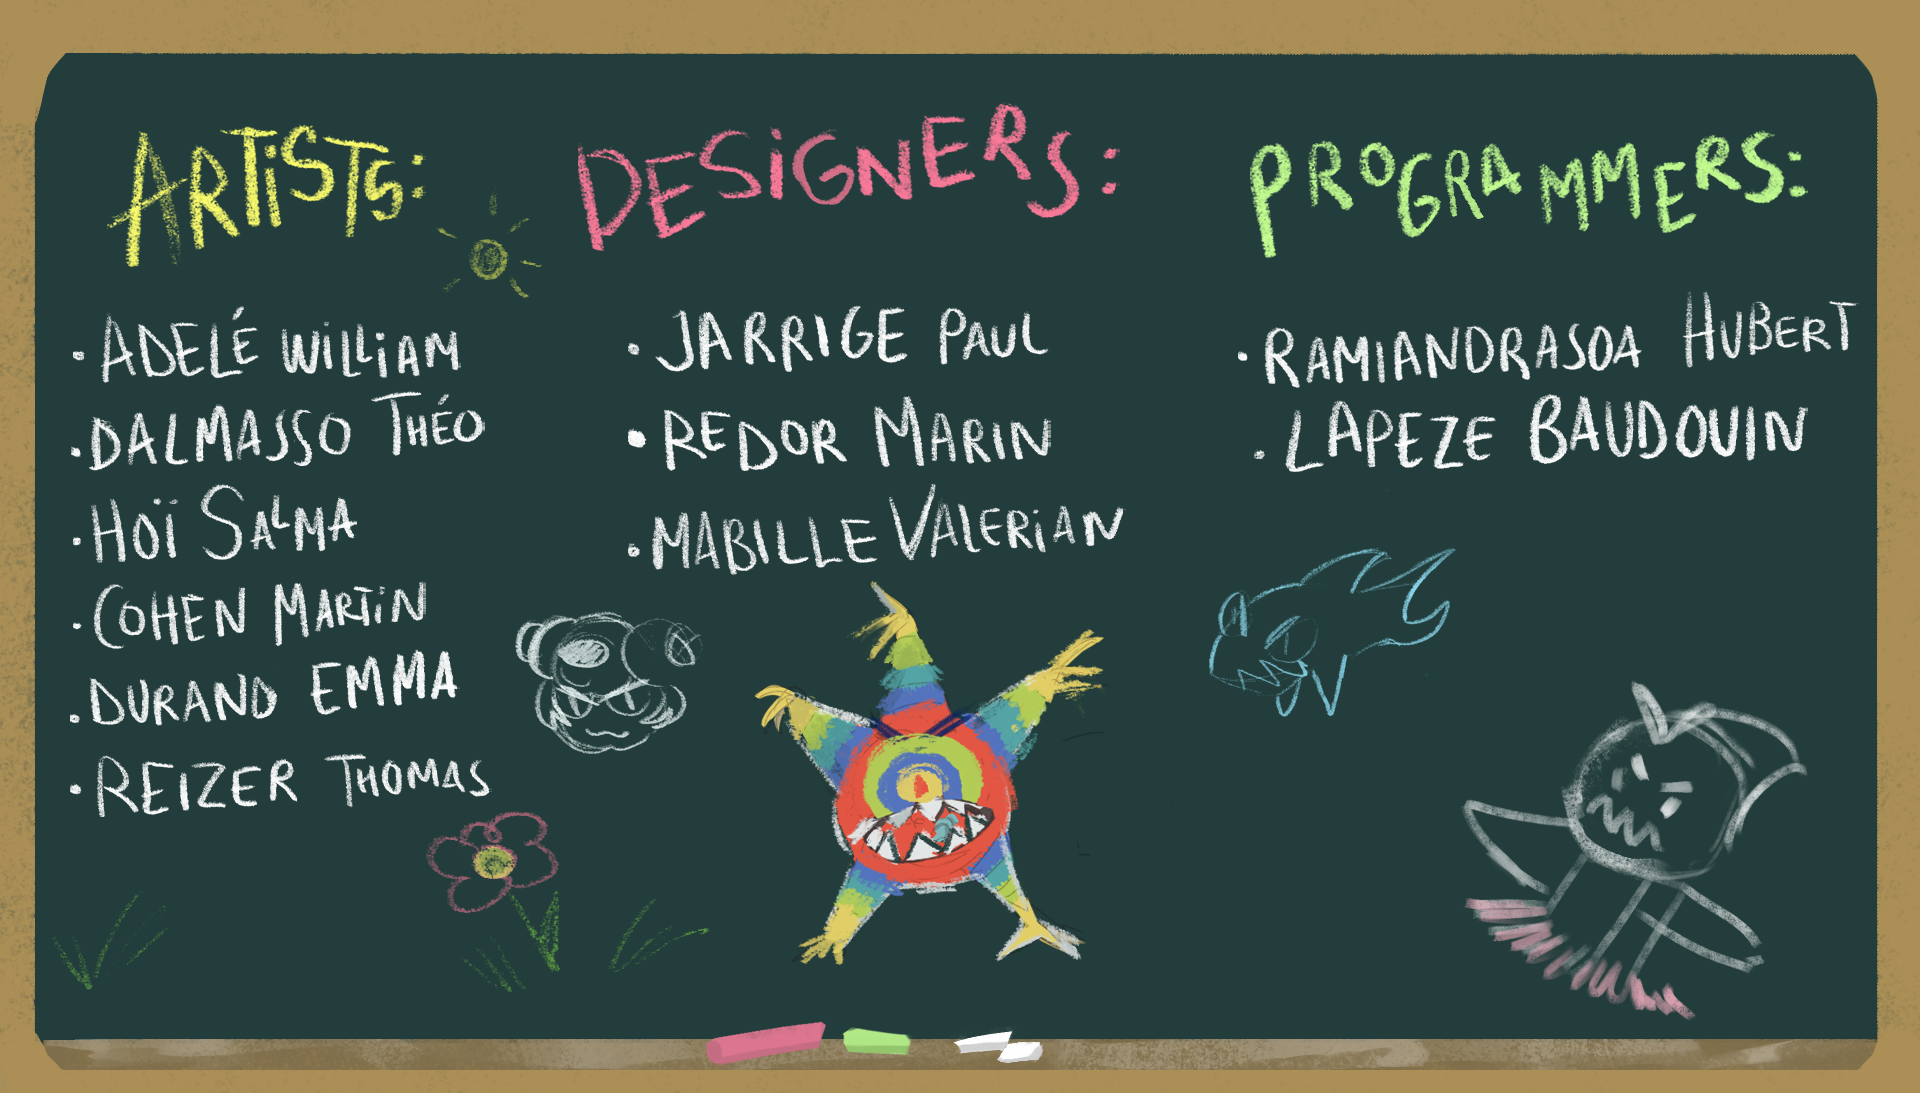 ARTISTS:
ADELÉ WILLIAM
DALMASSO THÉO
HOÏ SALMA
COHEN MARTIN
DURAND EMMA
REIZER THOMAS
DESIGNERS:
JARRIGE PAUL
REDOR MARIN
MABILLE VALERIAN
PROGRAMMERS:
RAMIANDRASOA HUBERT
LAPEZE BAUDOUIN